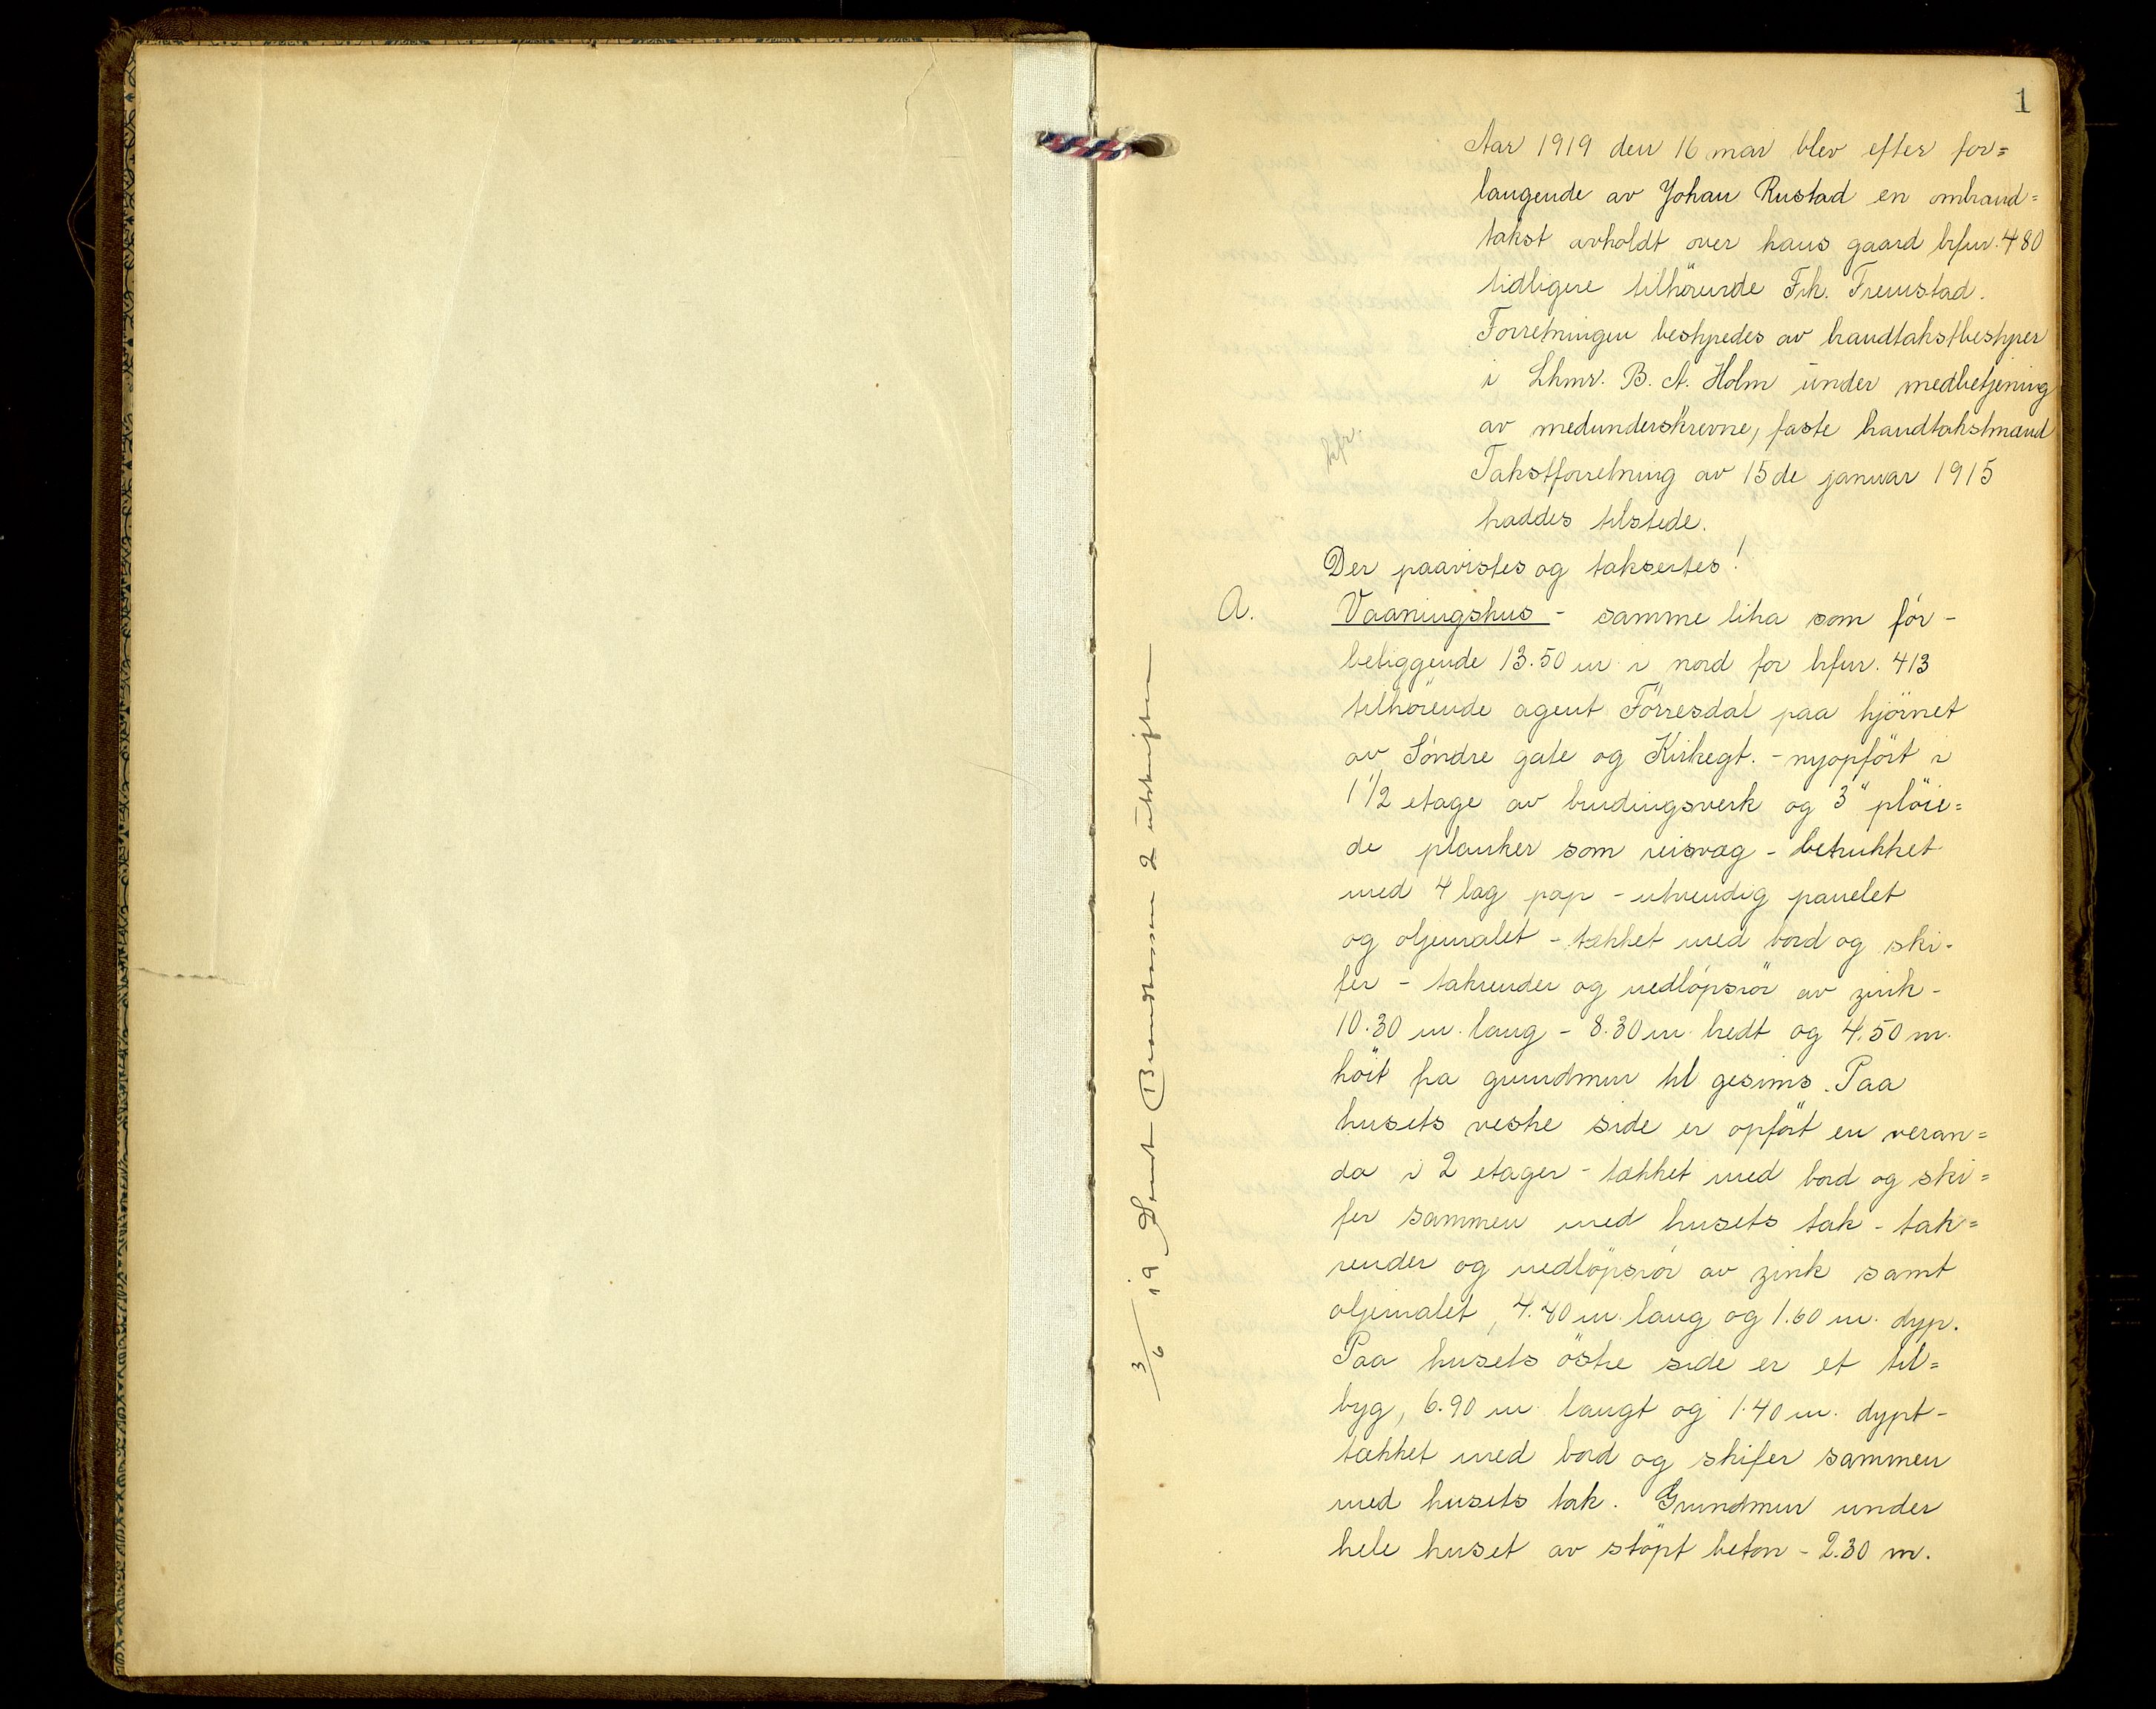 1
Aar 1919 den 16 mai blev efter for=
langende av Johan Rustad en ombrand=
takst avholdt over hans gaard brfnr. 480
tidligere tilhörende Frk. Fremstad.
Forretningen bestyredes av brandtakstbestyrer
i Lhmr. B. A. Holm under medbetjening
av medunderskrevne, faste brandtakstmænd
Takstforretning av 15de januar 1915
haddes tilstede.
Der paavistes og taksertes!
A. Vaaningshus - samme litra som för -
beliggende 13.50 m i nord for brfnr. 413
tilhörende agent Förresdal paa hjörnet
av Söndre gate og Kirkegt. - nyopfört i
1 1/2 etage av bindingsverk og 3" plöie=
de planker som reisvæg - betrukket
med 4 lag pap - utvendig panelet
og oljemalet - tækket med bord og ski-
fer - takrender og nedlöpsrör av zink -
10.30 m. lang - 8.30 m. bredt og 4.50 m.
höit fra grundmur til gesims. Paa
husets vestre side er opfört en veran=
da i 2 etager - tækket med bord og ski=
fer sammen med husets tak - tak=
render og nedlöpsrör av zink samt
oljemalet, 4.40 m. lang og 1.60 m. dyp.
Paa husets östre side er et til=
byg, 6.90 m langt og 1.40 m. dypt -
tækket med bord og skifer sammen
med husets tak. Grundmur under
hele huset av stöpt beton - 2.30 m.
3/6 19 Sendt Brandkassen 2 utskrifter